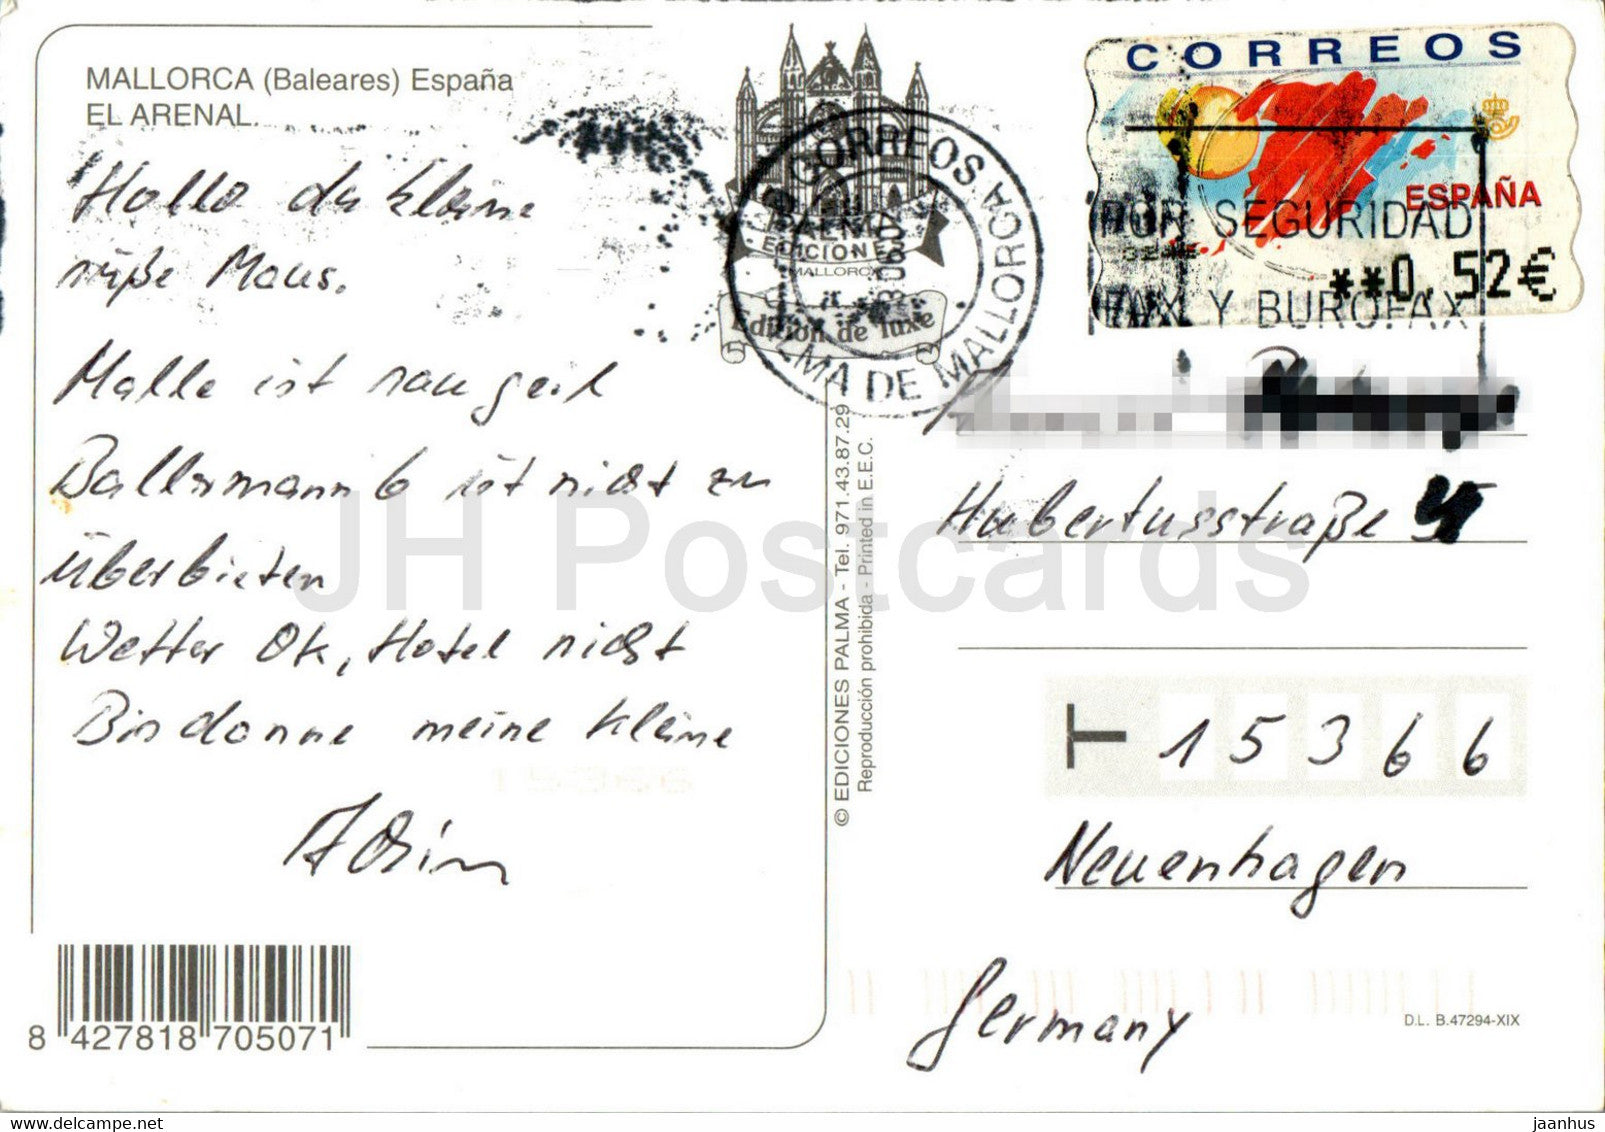 MALLORCA (Baleares) España
EL ARENAL.
Hallo du kleine
süße Maus.
Malle ist sau geil
Ballermann 6 ist nicht zu
überbieten
Wetter Ok, Hotel nicht
Bis danne meine kleine
8 427818 705071
EDICIONES
MALLORCA
Edition de luxe
CORREOS
PALMA DE MALLORCA
© EDICIONES PALMA - Tel. 971.43.87.29
Reproducción prohibida - Printed in E.E.C.
CORREOS
ESPAÑA
POR SEGURIDAD
**0,52€
FAX Y BUROFAX
Hubertusstraße
T 15366
Neuenhagen
Germany
D.L. B.47294-XIX
JH Postcards
jaanhus
delcampe.net